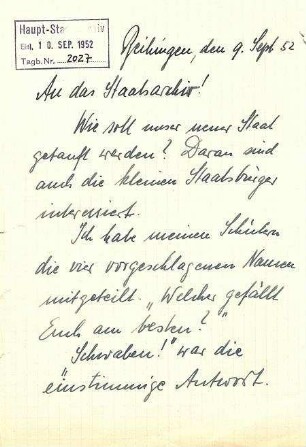 Haupt-Staatsarchiv
Eing. 10. SEP. 1952
Tagb. Nr. 2027
Beihingen, den 9. Sept 52
An das Staatsarchiv!
Wie soll unser neuer Staat
getauft werden? Daran sind
auch die kleinen Staatsbürger
interessiert.
Ich habe meinen Schülern
die vier vorgeschlagenen Namen
mitgeteilt. „Welcher gefällt
Euch am besten?"
„Schwaben!" war die
einstimmige Antwort.